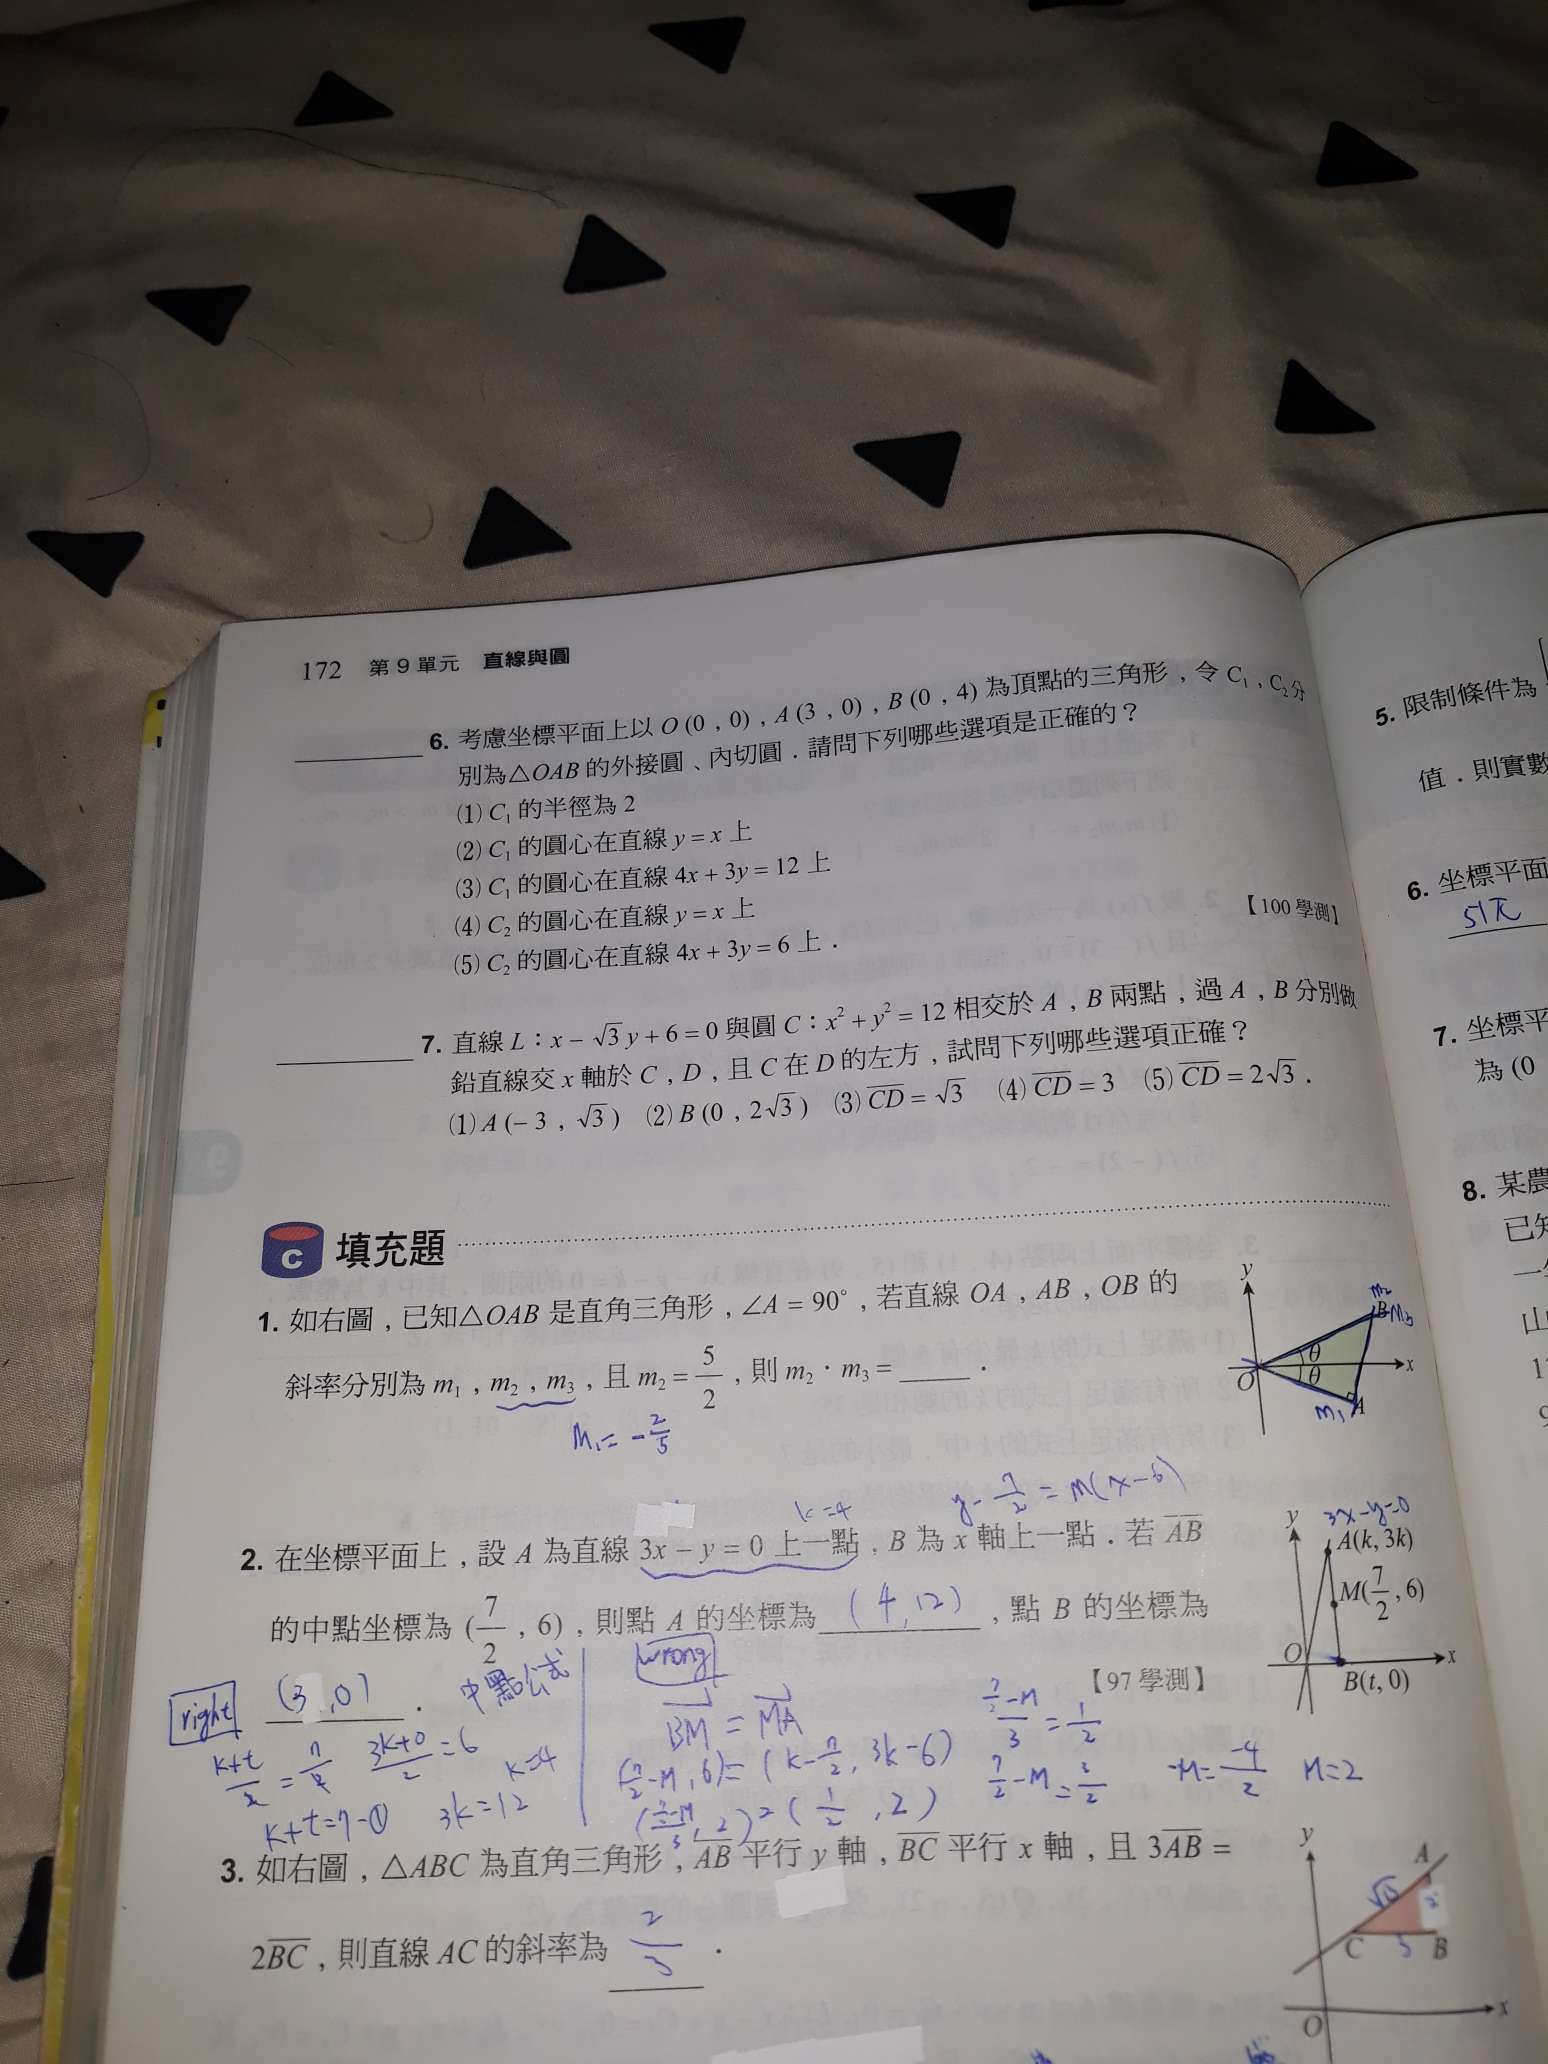 172 第9單元 直線與圓
6. 考慮坐標平面上以 O (0 , 0) , A (3 , 0) , B (0 , 4) 為頂點的三角形，令 C₁ , C₂分
別為△OAB 的外接圓、內切圓．請問下列哪些選項是正確的？
(1) C₁ 的半徑為 2
(2) C₁ 的圓心在直線 y = x 上
(3) C₁ 的圓心在直線 4x + 3y = 12 上
(4) C₂ 的圓心在直線 y = x 上
(5) C₂ 的圓心在直線 4x + 3y = 6 上．
【100 學測】
7. 直線 L：x − √3 y + 6 = 0 與圓 C：x² + y² = 12 相交於 A , B 兩點，過 A , B 分別做
鉛直線交 x 軸於 C , D，且 C 在 D 的左方，試問下列哪些選項正確？
(1) A (− 3 , √3 ) (2) B (0 , 2√3 ) (3) CD = √3 (4) CD = 3 (5) CD = 2√3．
C 填充題
1. 如右圖，已知△OAB 是直角三角形，∠A = 90°，若直線 OA , AB , OB 的
斜率分別為 m₁ , m₂ , m₃，且 m₂ = 5/2，則 m₂ · m₃ = ．
m₁ = -2/5
y
m₂
B m₃
θ
θ
x
O
m₁ A
k=4
y - 7/2 = m(x-6)
2. 在坐標平面上，設 A 為直線 3x − y = 0 上一點，B 為 x 軸上一點．若 AB
的中點坐標為 (7/2 , 6)，則點 A 的坐標為 (4,12)，點 B 的坐標為
right (3,0)． 中點公式
【97 學測】
(k+t)/2 = 7/2
(3k+0)/2 = 6
k+t=7-①
3k=12
k=4
wrong
BM = MA
(7/2-M, 6) = (k-7/2, 3k-6)
(7/2-M/3, 2) = (1/2, 2)
7/2-M/3 = 1/2
7/2-M = 3/2
-M = -4/2
M=2
y
3x-y=0
A(k, 3k)
M(7/2, 6)
O
x
B(t, 0)
3. 如右圖，△ABC 為直角三角形，AB 平行 y 軸，BC 平行 x 軸，且 3AB =
2BC，則直線 AC 的斜率為 2/3．
y
A
√13
2
C
3
B
O
x
5. 限制條件為
值．則實數
6. 坐標平面
51π
7. 坐標平
為 (0
8. 某農
已知
一
山